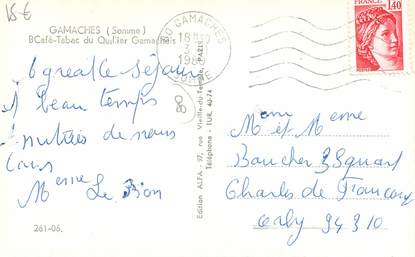 15€
GAMACHES (Somme)
BCafé-Tabac du Quartier Gamachois
GAMACHES
18H
3
SOMME
FRANCE
1,40
88
agreable séjour
beau temps
amitiés de nous
tous
Mme Le Bion
261-06.
Edition ALFA - 97, rue Vieille-du-Temple, PARIS
Téléphone : TUR. 40-74
Mr et Mme
Boucher 3 Squart
Charles de Foucauy
Orly 94310